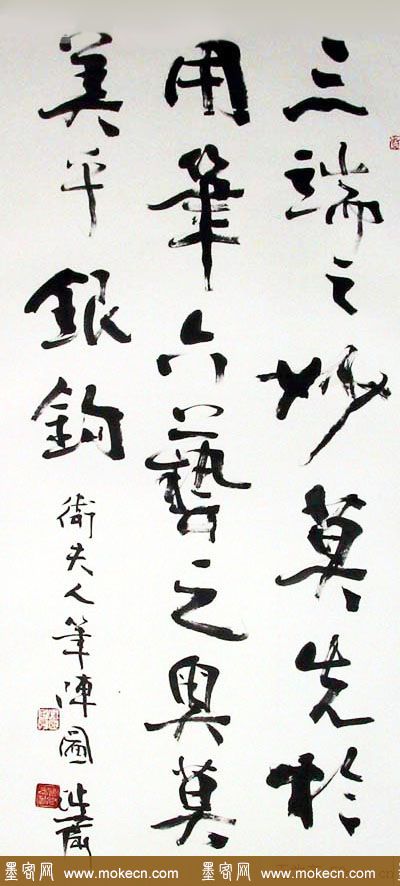 三端之妙莫先於
用筆六藝之奧莫
美乎銀鉤
衛夫人筆陣圖
墨客网 www.mokecn.com 墨客网 www.mokecn.com